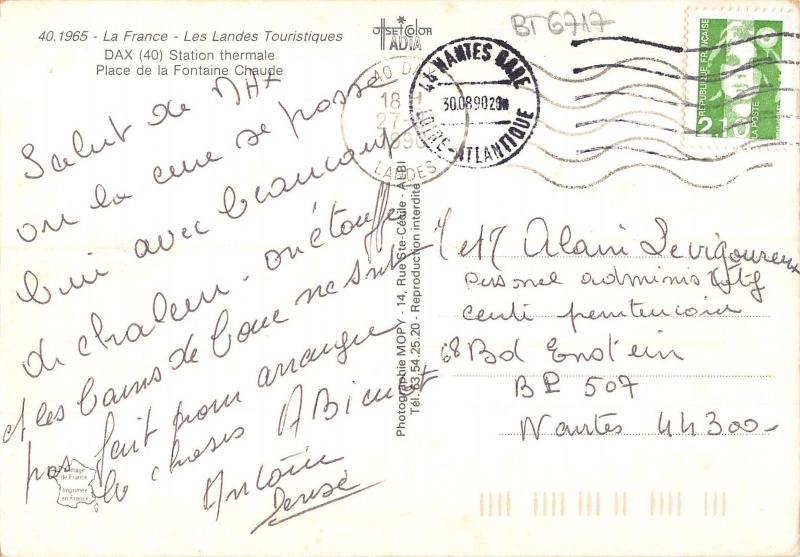 40.1965 - La France - Les Landes Touristiques
DAX (40) Station thermale
Place de la Fontaine Chaude
OFFSET COLOR
ADIA
BT 6717
40 DAX
18 H
27-
1990
LANDES
44 NANTES GARE
30.08.90 20H
LOIRE-ATLANTIQUE
RÉPUBLIQUE FRANÇAISE
2,10
LA POSTE
Salut de DAX
ou la cure se passe
bien avec beaucoup
de chaleur. on étouffe
et les bains de boue ne sont
pas fait pour arranger
les choses A Bientot
Antoine
Denise
Photographie MOPY - 14, Rue Ste-Cécile - ALBI
Tél. 63.54.25.20 - Reproduction interdite
Image
de France
Imprimée
en France
M et M Alain Levigoureux
personel administratif
centre penitencier
68 Bd Enstein
BP 507
Nantes 44300